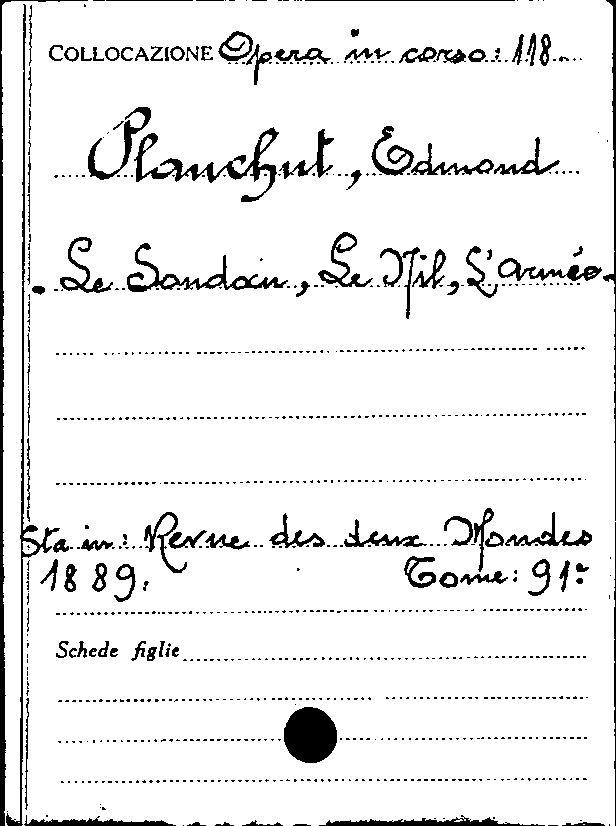 COLLOCAZIONE Opera in corso: 118.
Planchut, Edmond
- Le Soudan, Le Nil, L'armée -
Sta in: Revue des deux Mondes
1889. Tome: 91º
Schede figlie